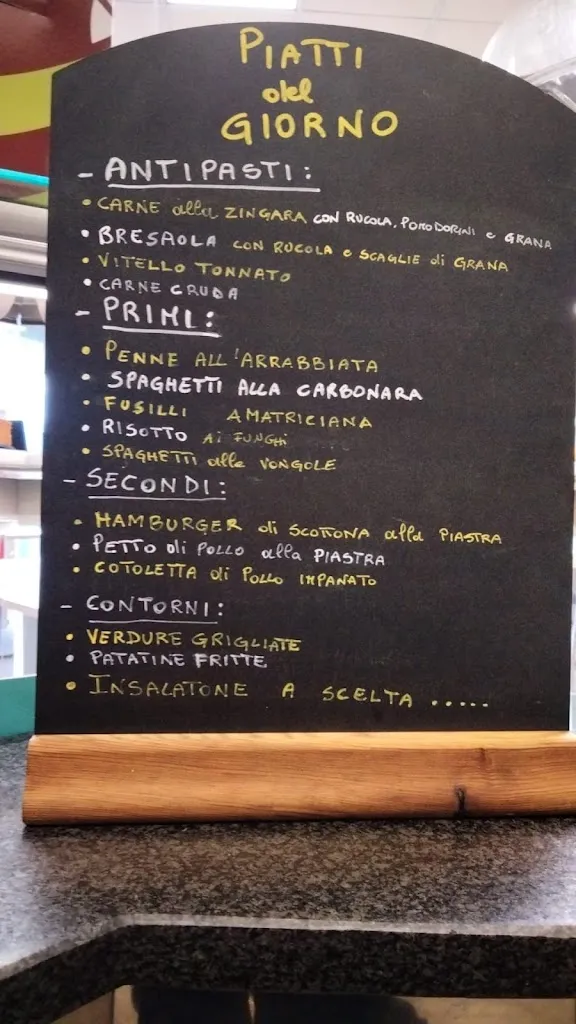 PIATTI
del
GIORNO
- ANTIPASTI:
• CARNE alla ZINGARA CON RUCOLA, POMODORINI e GRANA
• BRESAOLA CON RUCOLA e SCAGLIE di GRANA
• VITELLO TONNATO
• CARNE CRUDA
- PRIMI:
• PENNE ALL'ARRABBIATA
• SPAGHETTI ALLA CARBONARA
• FUSILLI AMATRICIANA
• RISOTTO Ai FUNGHi
• SPAGHETTi alle VONGOLE
- SECONDI:
• HAMBURGER di SCOTTONA alla PIASTRA
• PETTO di POLLO alla PIASTRA
• COTOLETTA di POLLO IMPANATO
- CONTORNI:
• VERDURE GRIGLIATE
• PATATINE FRITTE
• INSALATONE A SCELTA .....